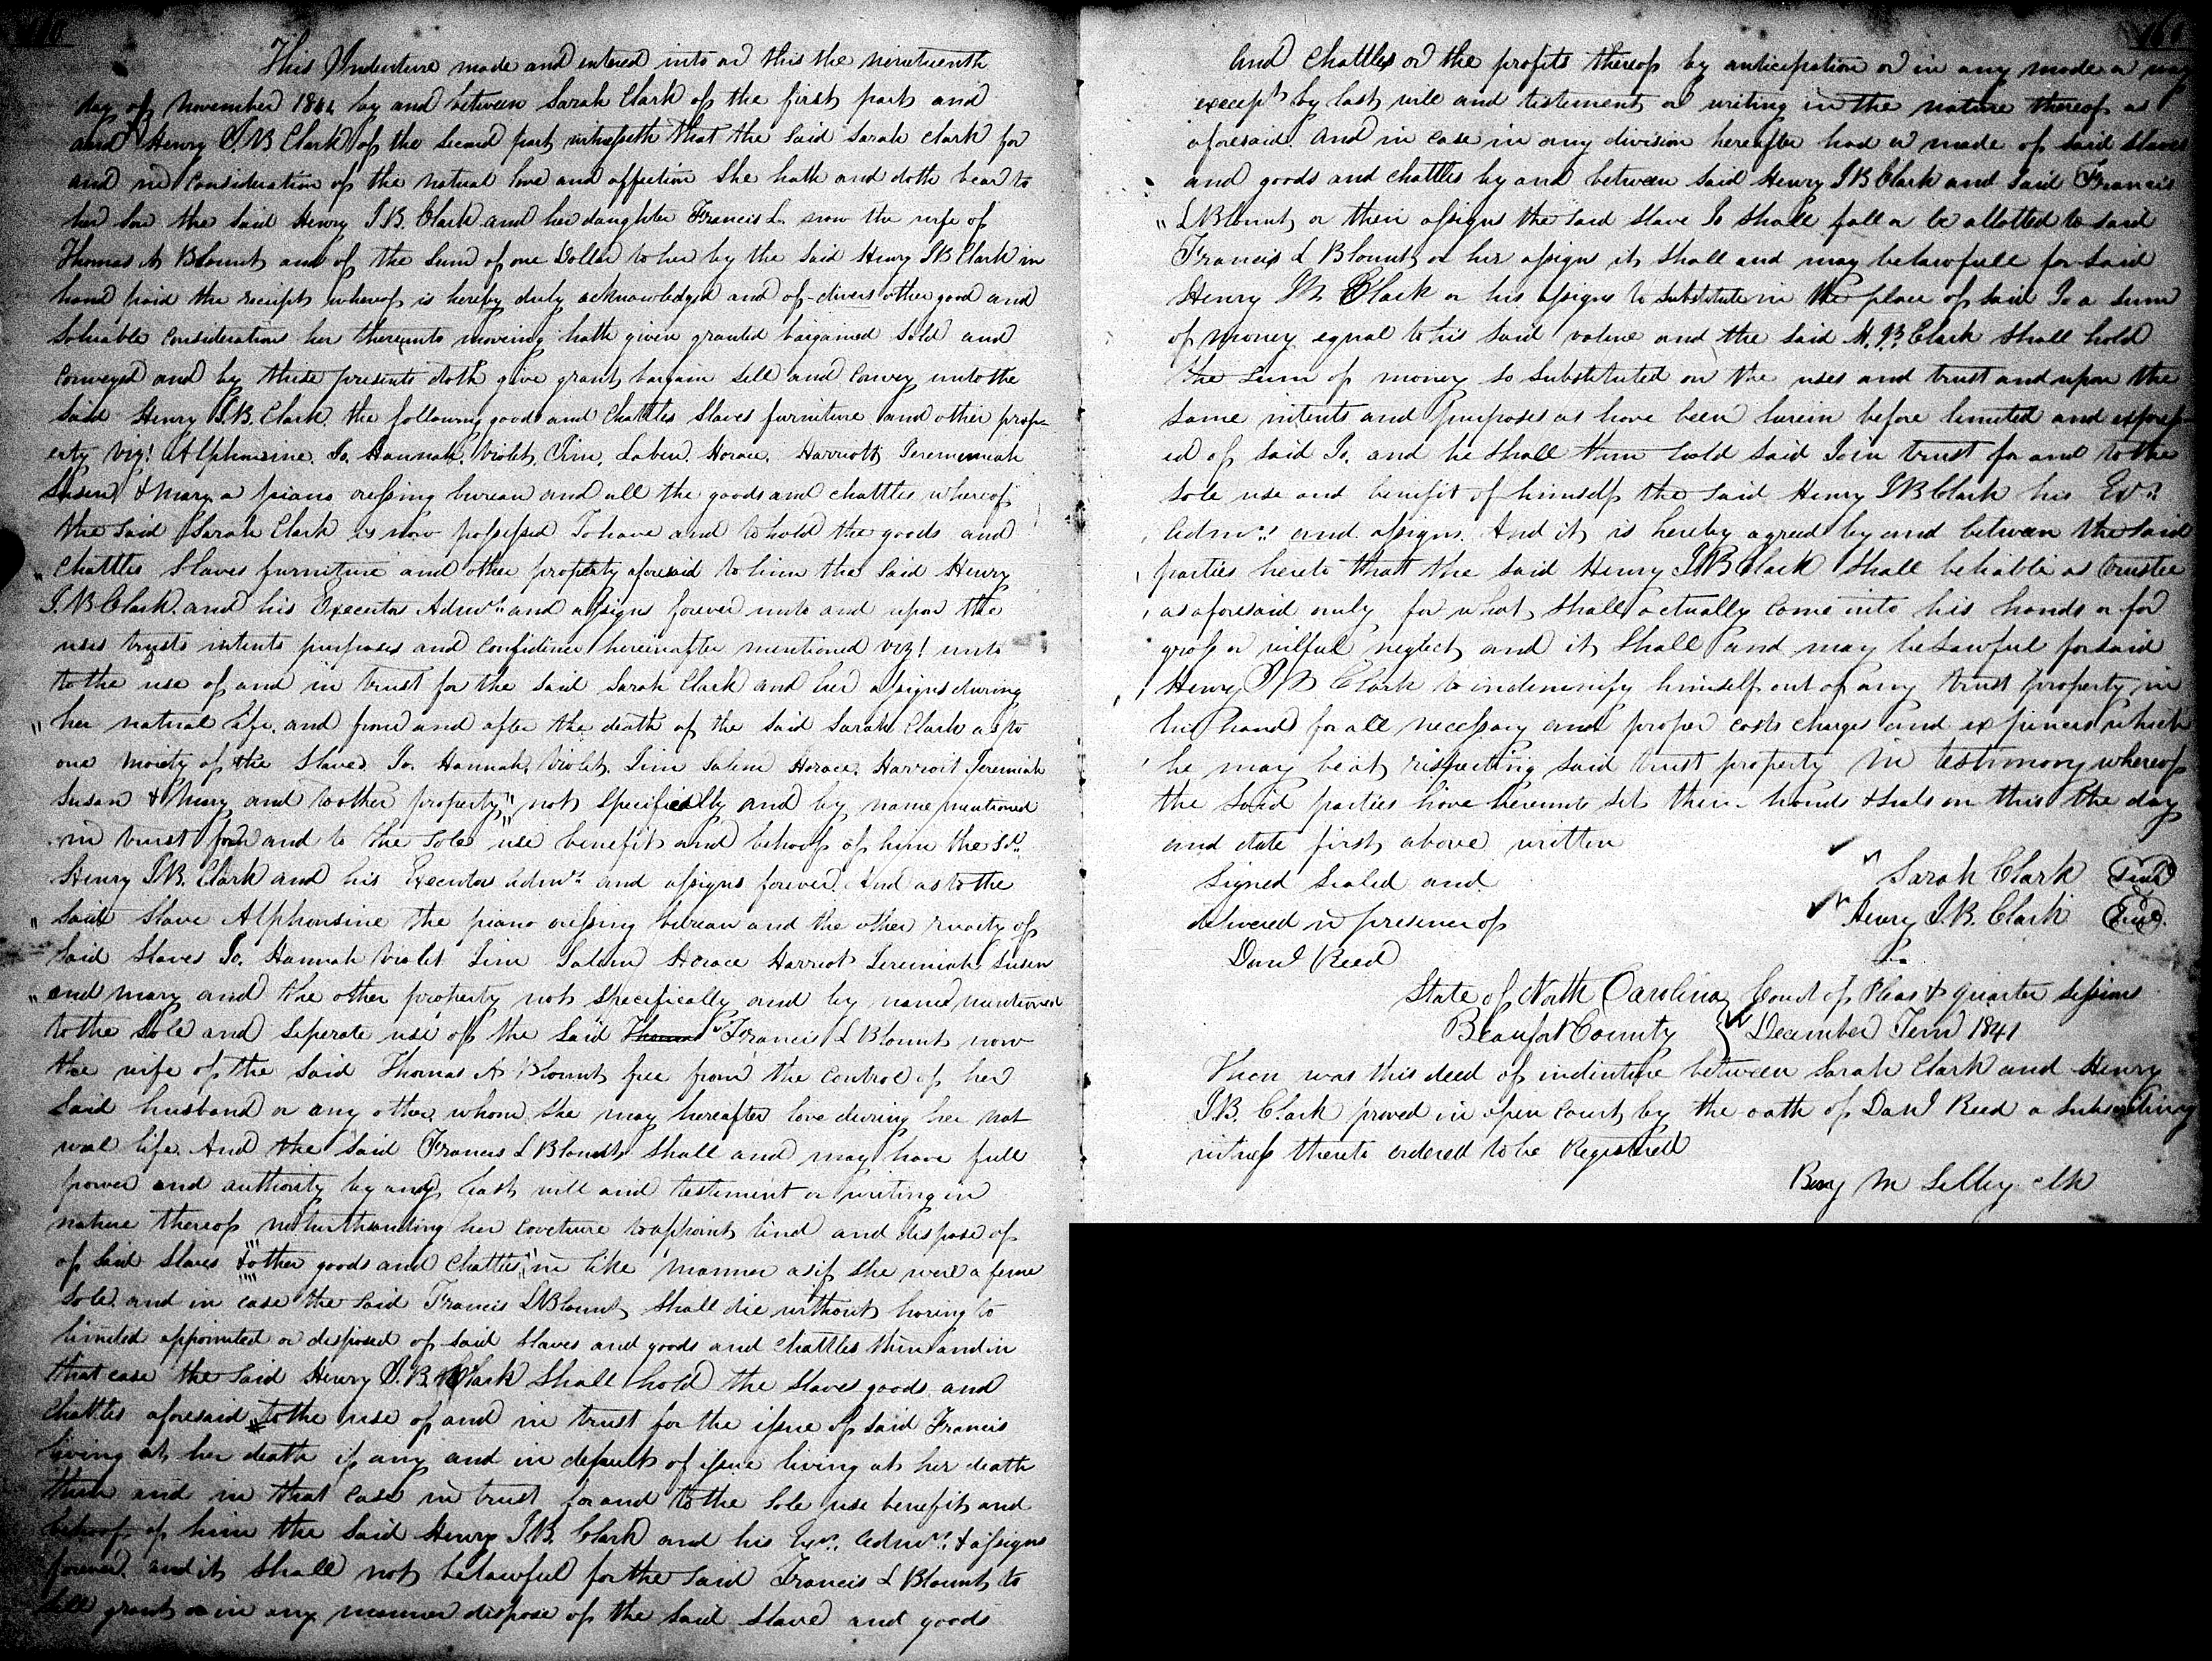 This Indenture made and entered into on this the nineteenth
day of November 1841 by and between Sarah Clark of the first part and
and Henry I. B Clark of the second part witnesseth that the said Sarah Clark for
and in consideration of the natural love and affection She hath and doth bear to
her son the said Henry I B. Clark and her daughter Francis L. now the wife of
Thomas H Blount and of the sum of one Dollar to her by the said Henry I B Clark in
hand paid the receipt whereof is hereby duly acknowledged and of divers other good and
valuable consideration her thereunto moving hath given granted bargained Sold and
Conveyed and by these presents doth give grant bargain sell and convey unto the
said Henry I. B. Clark the following goods and Chattles Slaves furniture and other prop
erty viz! Alphonsine. Jo. Hannah. Violet. Jim. Horace. Harriott Jerememiah
Susan & Mary a piano bureau and all the goods and chattles whereof
the said Sarah Clark is now possessed To have and to hold the goods and
Chattles Slaves furniture and other property aforesaid to him the said Henry
I. B Clark and his Executor Admrs and assigns forever unto and upon the
uses trusts intents purposes and confidence hereinafter mentioned viz! unto
to the use of and in trust for the said Sarah Clark and her assigns during
her natural life. and from and after the death of the said Sarah Clark as to
one moiety of the Slaves Jo. Hannah. Violet. Jim Salem Horace. Harriot Jeremiah
Susan & Mary and to other property not specifically and by name mentioned
in trust for and to the sole use benefit and behoof of him the sd.
Henry I B. Clark and his Executor admrs and assigns forever. And as to the
said slave Alphonsine the piano bureau and the other moiety of
said Slaves Jo. Hannah Violet Jim Salem Horace Harriot Jeremiah Susan
and Mary and the other property not specifically and by name mentioned
to the sole and seperate use of the said Francis L Blount now
the wife of the said Thomas H Blount free from the control of her
said husband or any other whom she may hereafter love during her nat
ural life. And the said Francis L Blount shall and may have full
power and authority by any last will and testement or writing in
nature thereof notwithstanding her coveture to appoint limit and dispose of
of said Slaves & other goods and Chattles in like manner as if she were a feme
Sole. and in case the said Francis L Blount shall die without having to
limited appointed or disposed of said Slaves and goods and Chattles then and in
that case the said Henry I. B. Clark shall hold the slaves goods and
Chattles aforesaid to the use of and in trust for the issue of said Francis
living at her death if any and in default of issue living at her death
then and in that case in trust for and to the sole use benefit and
behoof of him the said Henry I B. Clark and his Exrs. Admrs. & assigns
forever. and it shall not be lawful for the said Francis L Blount to
sell grant or in any manner dispose of the said Slaves and goods
And Chattles or the profits thereof by anticipation or in any mode or way
except by last will and testement or writing in the nature thereof as
aforesaid. And in case in any division hereafter had or made of said slaves
and goods and chattles by and between said Henry I B Clark and said Francis
L Blount or their assigns the said slave Jo shall fall or be allotted to said
Francis L Blount or her assigns it shall and may be lawfull for said
Henry B. Clark or his assigns to substitute in the place of said Jo a sum
of money equal to his said value and the said H. B. Clark shall hold
the sum of money so substituted on the uses and trust and upon the
same intents and purposes as have been herein before limited and express
ed of said Jo. and he shall then hold said Jo in trust for and to the
sole use and benefit of himself the said Henry I B Clark his Exrs.
admrs. and assigns. And it is hereby agreed by and between the said
parties hereto that the said Henry I B Clark shall be liable as trustee
as aforesaid only for what shall actually come into his hands or for
gross or wilful neglect and it shall and may be lawful for said
Henry I B Clark to indemnify himself out of any trust property in
his hands for all necessary and proper costs charges and expences which
he may be at respecting said trust property In testimony whereof
the said parties have hereunto set their hands & seals on this the day
and date first above written
Signed Sealed and
Sarah Clark Seal
delivered in presence of
Henry I. B. Clark Seal
Danl Reed
State of North Carolina Court of Pleas & Quarter Sessions
Beaufort County December Term 1841
Then was this deed of indenture between Sarah Clark and Henry
I. B. Clark proved in open court by the oath of Danl Reed a subscribing
witness thereto ordered to be Registered
Benj M Selby Clk